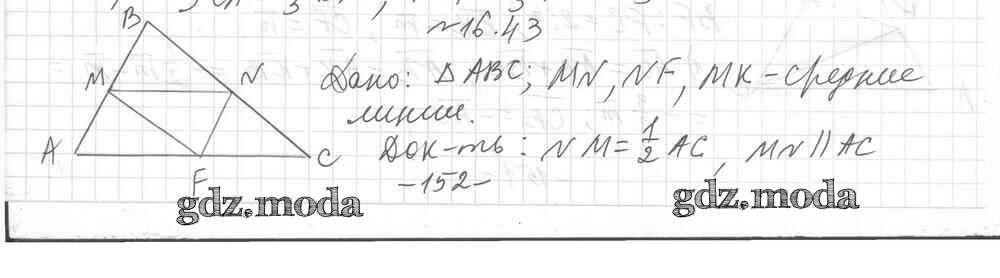 №16.43
B
M
N
A
C
F
Дано: △ABC; MN, NF, MK - средние
линии.
Док-ть: NM = 1/2 AC, MN || AC
-152-
gdz.moda
gdz.moda